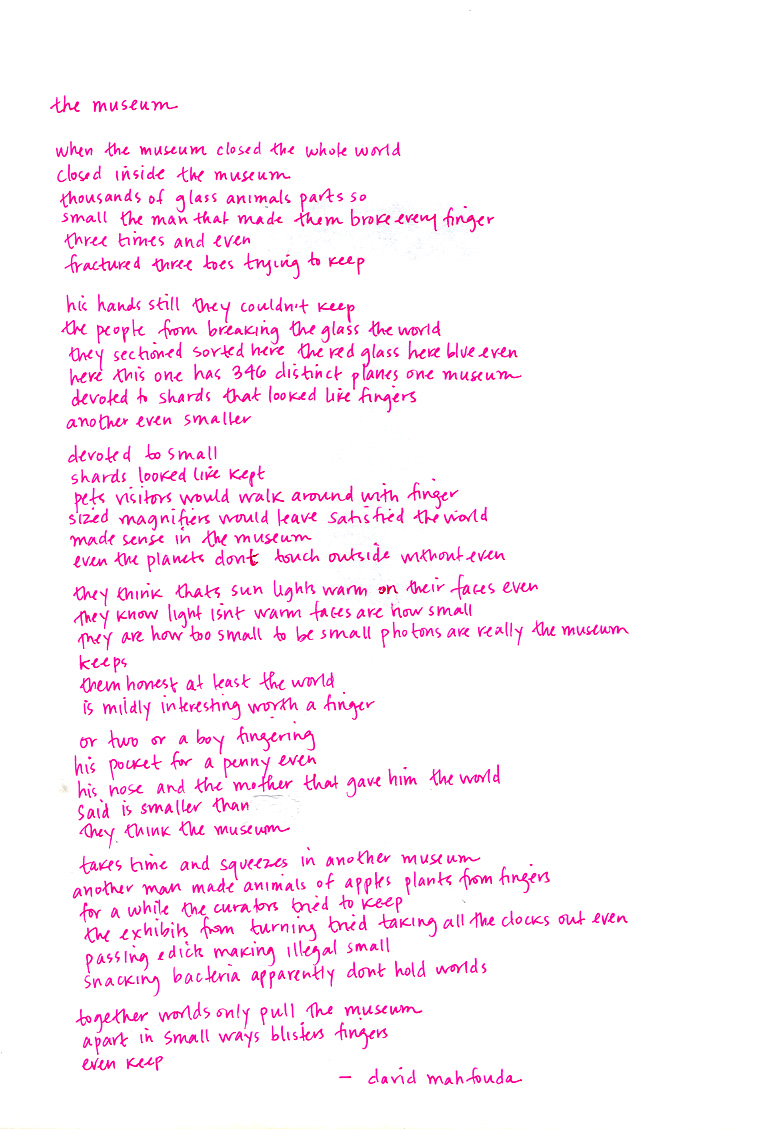 the museum
when the museum closed the whole world
closed inside the museum
thousands of glass animals parts so
small the man that made them broke every finger
three times and even
fractured three toes trying to keep
his hands still they couldn't keep
the people from breaking the glass the world
they sectioned sorted here the red glass here blue even
here this one has 346 distinct planes one museum
devoted to shards that looked like fingers
another even smaller
devoted to small
shards looked like kept
pets visitors would walk around with finger
sized magnifiers would leave satisfied the world
made sense in the museum
even the planets dont touch outside without even
they think thats sun lights warm on their faces even
they know light isnt warm faces are how small
they are how too small to be small photons are really the museum
keeps
them honest at least the world
is mildly interesting worth a finger
or two or a boy fingering
his pocket for a penny even
his nose and the mother that gave him the world
said is smaller than
they think the museum
takes time and squeezes in another museum
another man made animals of apples plants from fingers
for a while the curators tried to keep
the exhibits from turning tried taking all the clocks out even
passing edicts making illegal small
snacking bacteria apparently dont hold worlds
together worlds only pull the museum
apart in small ways blisters fingers
even keep
— david mahfouda